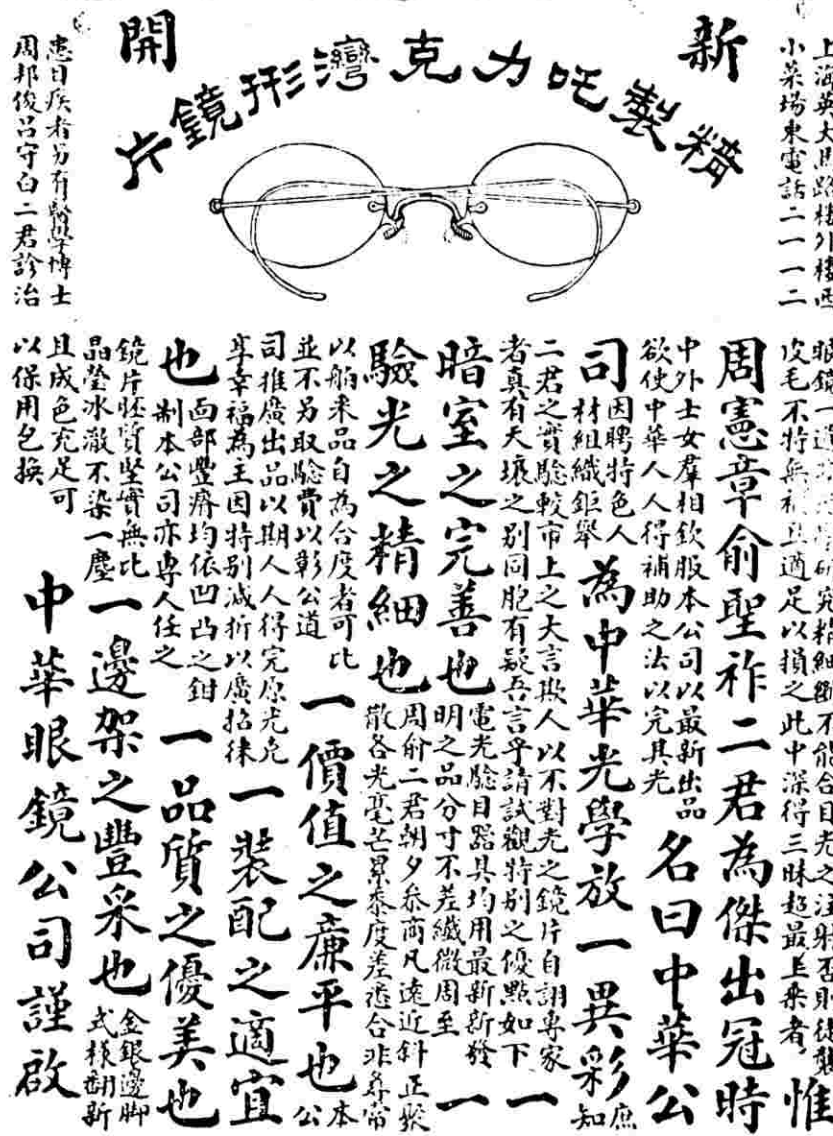 新開
精製吒力克灣形鏡片
上海英大馬路樓外樓西
小菜場東電話二一一二
患目疾者另有醫學博士
周邦俊呂守白二君診治
眼鏡一道研究精細斷不能合目光之注射否則徒襲
皮毛不特無補且適足以損之此中深得三昧超最上乘者惟
周憲章俞聖祚二君為傑出冠時
中外士女羣相欽服本公司以最新出品
欲使中華人人得補助之法以完其光
名曰中華公
司
因聘特色人
材組織鉅舉
為中華光學放一異彩
庶
知
二君之實驗較市上之大言欺人以不對光之鏡片自詡專家
者真有天壤之別同胞有疑吾言乎請試觀特別之優點如下
一
暗室之完善也
電光驗目器具均用最新新發
明之品分寸不差纖微周至
一
驗光之精細也
周俞二君朝夕叅商凡遠近斜正聚
散各光毫芒累黍度差悉合非尋常
以舶来品自為合度者可比
並不另取驗費以彰公道
一價值之廉平也
本
公
司推廣出品以期人人得完原光危
享幸福為主因特別減折以廣招徠
一裝配之適宜
也
面部豐瘠均依凹凸之鉗
制本公司亦專人任之
一品質之優美也
鏡片胚質堅實無比
晶瑩冰澈不染一塵
一邊架之豐采也
金銀邊脚
式樣翻新
且成色充足可
以保用包換
中華眼鏡公司謹啟